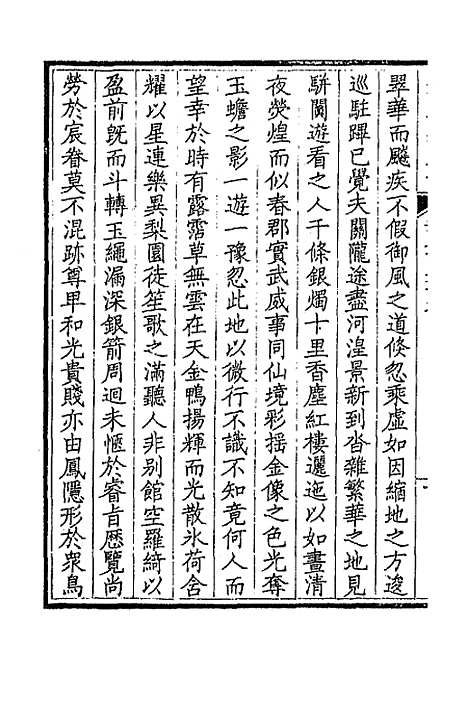 翠華而飈疾不假御風之道倏忽乘虛如因縮地之方逡
巡駐蹕已覺夫關隴途盡河湟景新到沓雜繁華之地見
駢闐遊看之人千條銀燭十里香塵紅樓邐迤以如晝清
夜熒煌而似春郡實武威事同仙境彩搖金像之色光奪
玉蟾之影一遊一豫忽此地以微行不識不知竟何人而
望幸於時有露霑草無雲在天金鴨揚輝而光散氷荷含
耀以星連樂異梨園徒笙歌之滿聽人非別館空羅綺以
盈前旣而斗轉玉繩漏深銀箭周迴未愜於睿旨歷覽尚
勞於宸眷莫不混跡尊卑和光貴賤亦由鳳隱形於衆鳥